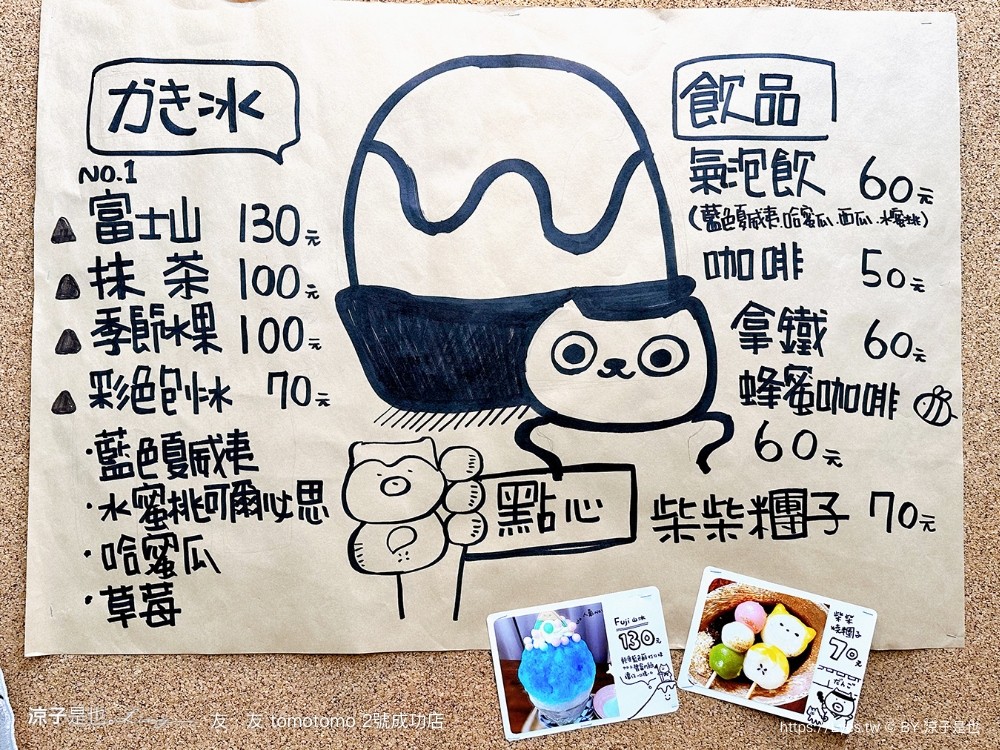 かき冰
NO.1
富士山 130元
抹茶 100元
季節水果 100元
彩色刨冰 70元
·藍色夏威夷
·水蜜桃可爾必思
·哈蜜瓜
·草莓
飲品
氣泡飲 60元
(藍色夏威夷.哈蜜瓜.西瓜.水蜜桃)
咖啡 50元
拿鐵 60元
蜂蜜咖啡
60元
點心
柴柴糰子 70元
Fuji 山冰
130元
柴柴
燒糰子
70元
だんご
涼子是也
友·友 tomotomo 2號成功店
© BY 涼子是也